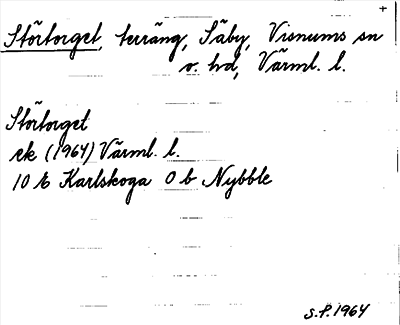 +
Störtorget, terräng, Säby, Visnums sn
o. hd, Värml. l.
Störtorget
ek (1964) Värml. l.
10 E Karlskoga 0 b Nybble
S.P. 1964